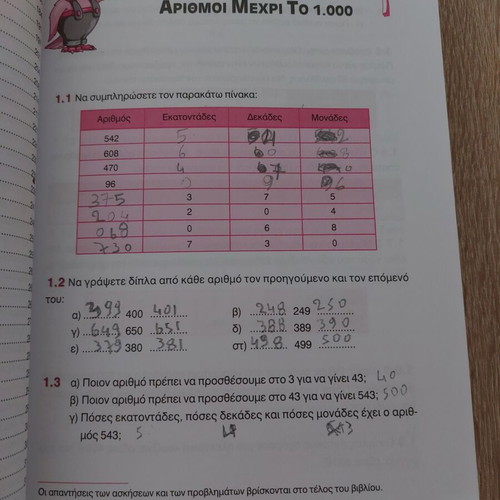 ΑΡΙΘΜΟΙ ΜΕΧΡΙ ΤΟ 1.000
1.1 Να συμπληρώσετε τον παρακάτω πίνακα:
Αριθμός Εκατοντάδες Δεκάδες Μονάδες
542 5 4 2
608 6 0 8
470 4 7 0
96 9 6
375 3 7 5
204 2 0 4
068 0 6 8
730 7 3 0
1.2 Να γράψετε δίπλα από κάθε αριθμό τον προηγούμενο και τον επόμενό
του:
α) 399 400 401 β) 248 249 250
γ) 649 650 651 δ) 388 389 390
ε) 379 380 381 στ) 498 499 500
1.3 α) Ποιον αριθμό πρέπει να προσθέσουμε στο 3 για να γίνει 43; 40
β) Ποιον αριθμό πρέπει να προσθέσουμε στο 43 για να γίνει 543; 500
γ) Πόσες εκατοντάδες, πόσες δεκάδες και πόσες μονάδες έχει ο αριθ-
μός 543; 5 4 3
Οι απαντήσεις των ασκήσεων και των προβλημάτων βρίσκονται στο τέλος του βιβλίου.